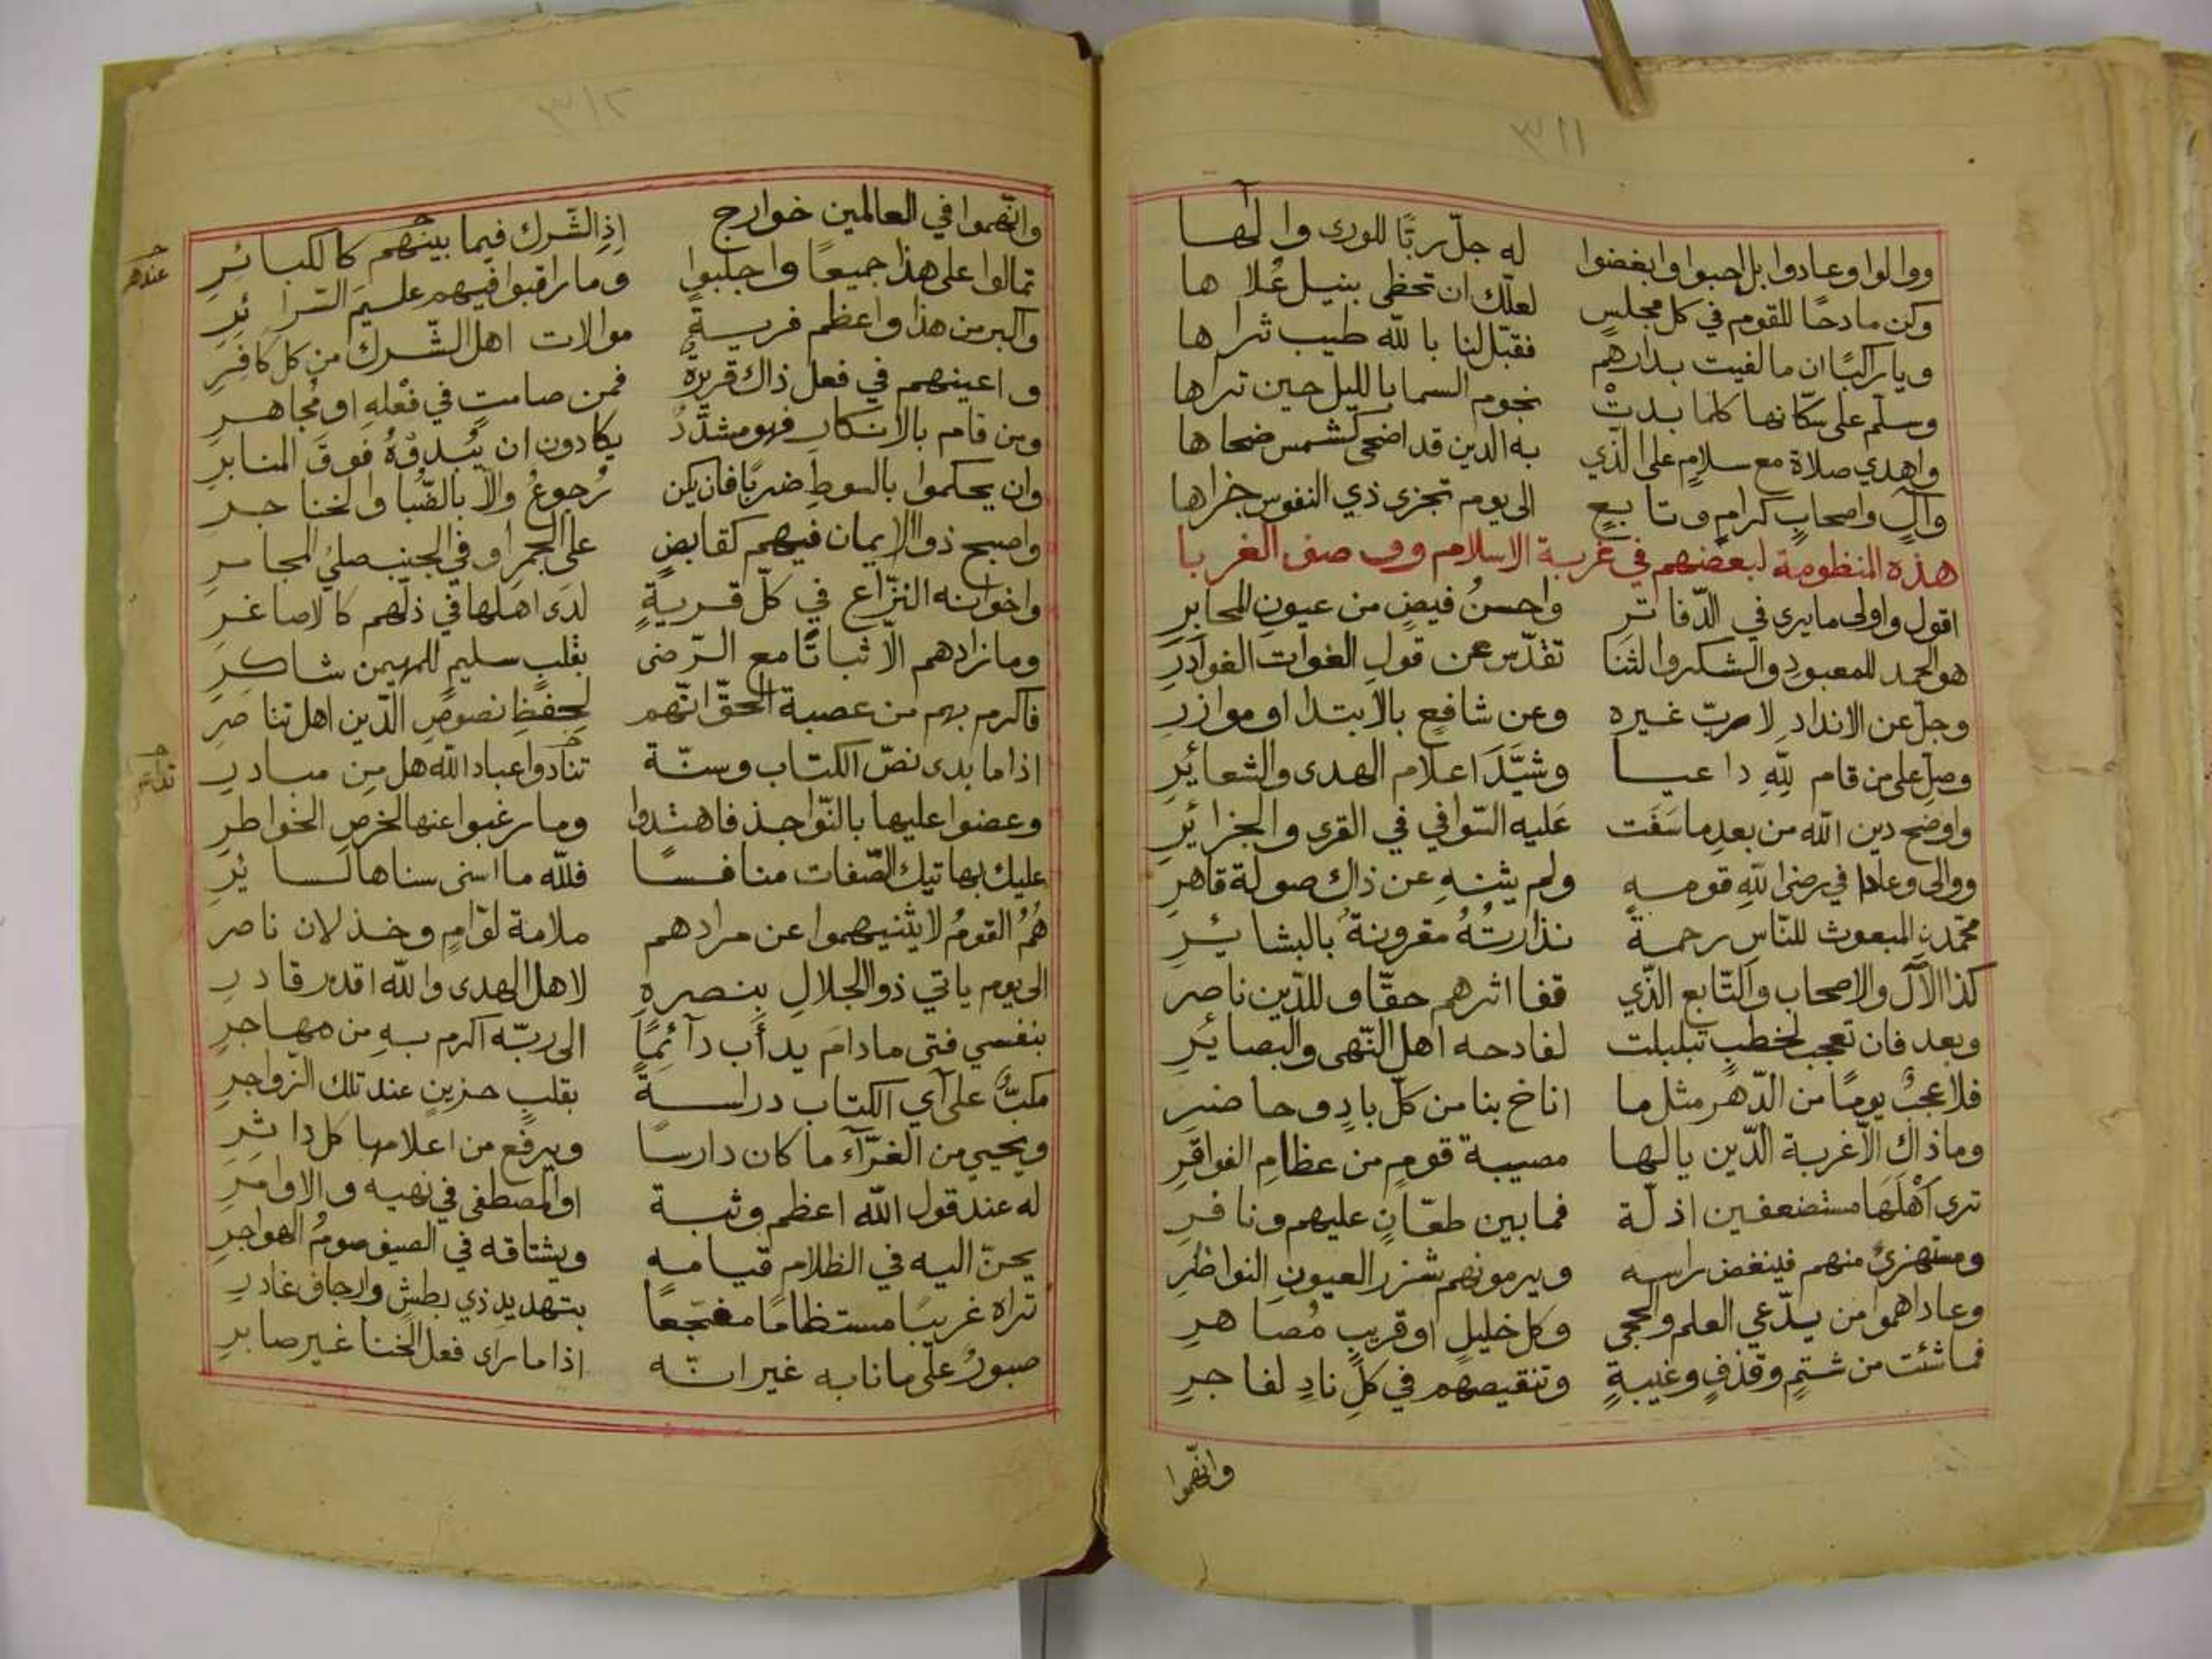 ٣١١
ووالوا وعادوا بل احبوا وابغضوا له جلّ ربًّا للورى وإلٰها
وكن مادحًا للقوم في كل مجلسٍ لعلّك ان تحظى بنيل عُلاها
ويا راكبًا ان ما لفيت بدارهم فقبّل لنا بالله طيب ثراها
وسلّم على سكّانها كلما بدتْ نجوم السما بالليل حين تراها
واهدي صلاة مع سلامٍ على الذّي به الدين قد اضحى كشمس ضحاها
وآلٍ واصحابٍ كرامٍ وتابعٍ الى يوم تجزى ذي النفوس جزاها
هذه المنظومة لبعضهم في غربة الاسلام ووصف الغربا
اقول واولى ما يرى في الدّفاترِ واحسنُ فيضٍ من عيونِ المحابرِ
هو الحمد للمعبودِ والشكر والثنَا تقدّس عن قولِ الغوات الغوادرِ
وجلّ عن الانداد لا ربّ غيره وعن شافعٍ بالابتدا او موازرِ
وصلِّ على من قام للهِ داعيا وشيَّدَ اعلام الهدى والشعائرِ
واوضح دين الله من بعدِ ما سَفَت عَليه السّوافي في القرى والجزائرِ
ووالى وعادا في رضى اللهِ قومه ولم يثنهِ عن ذاك صولة قاهرِ
محمّدنِ المبعوث للنّاسِ رحمةً نذارتُهُ مقرونةٌ بالبشائرِ
كذا الآل والاصحاب والتّابع الذّي قفا اثرهم حقّا وللدّين ناصر
وبعد فان تعجب لخطبٍ تبلبلت لفادحه اهل النّهى والبصائرِ
فلا عجبٌ يومًا من الدّهر مثل ما اناخ بنا من كلّ بادٍ وحاضرِ
وما ذاك الّا غربة الدّين يا لها مصيبة قومٍ من عظامِ الفواقرِ
ترى اهْلَهَا مستضعفين اذلّة فما بين طعّانٍ عليهم ونافرِ
ومستهزئٍ منهم فينغض راسه ويرمونهم شزر العيونِ النواظرِ
وعاداهموا من يدّعي العلم والحجى وكل خليلٍ او قريبٍ مُصاهرِ
فما شئت من شتمٍ وقذفٍ وغيبةٍ وتنقيصهم في كلّ نادٍ لفاجرِ
واتّهموا
٣١٢
واتّهموا في العالمين خوارج اِذِ الشّرك فيما بينهم كالكبائرِ
عندهم
تمالوا على هذا جميعًا واجلبوا وما راقبوا فيهم عليمَ السّرائرِ
واكبر من هذا واعظم فريةً موالات اهل الشّرك من كل كافِرِ
واعينهم في فعل ذاك قريرةٌ فمن صامتٍ في فعْلهِ او مُجاهرِ
ومن قام بالانكارِ فهو مشدّدٌ يكادون ان يُبدوْهُ فوقَ المنابرِ
وان يحكموا بالسوطِ ضربًا فان يكن رُجوعٌ والّا بالضُّبا والخناجرِ
واصبح ذو الايمان فيهم كقابضٍ على الجمرِ او في الجنبِ صليُ المجامرِ
واخوانه النزّاع في كلّ قريةٍ لدَى اهلها في ذلّهم كالاصاغرِ
وما زادهم الّا ثباتًا مع الرّضى بقلبٍ سليمٍ للمهيمن شاكرِ
فاكرم بهم من عصبة الحقّ انّهم لحِفظِ نصوصِ الدّين اهل تناصرِ
اذا ما بدى نصّ الكتاب وسنّة تنادوا عباد الله هل مِن مبادرِ
وعضوا عليها بالنّواجذ فاهتدوا وما رغبوا عنها لخرصِ الخواطرِ
عليك بهاتيك الصّفات منافسًا فللّه ما اسنى سناها لسائرِ
هُمُ القومُ لا يثنيهموا عن مرادهم ملامة لوّامٍ وخذلان ناصر
الى يوم ياتي ذو الجلالِ بِنصرهِ لاهل الهدى والله اقدر قادرِ
بنفسي فتى ما دامَ يدأَب دآئِمًا الى ربّه اكرم بهِ من مهاجرِ
مكبٌّ على آي الكتاب دراسةً بقلبٍ حزينٍ عند تلك الزّواجرِ
ويحيي من الغرّآء ما كان دارسًا ويرفع من اعلامها كل داثِرِ
له عند قول الله اعظم وثبة او المصطفى في نهيه والاوامرِ
يحنّ اليه في الظلام قيامه ويشتاقه في الصيف صومُ الهواجرِ
تراه غريبًا مستظامًا مفجّعًا بتهديد ذي بطشٍ وارجاف غادرِ
صبورٌ على ما نابه غير انّه اذا ما راى فعل الخنا غير صابرِ